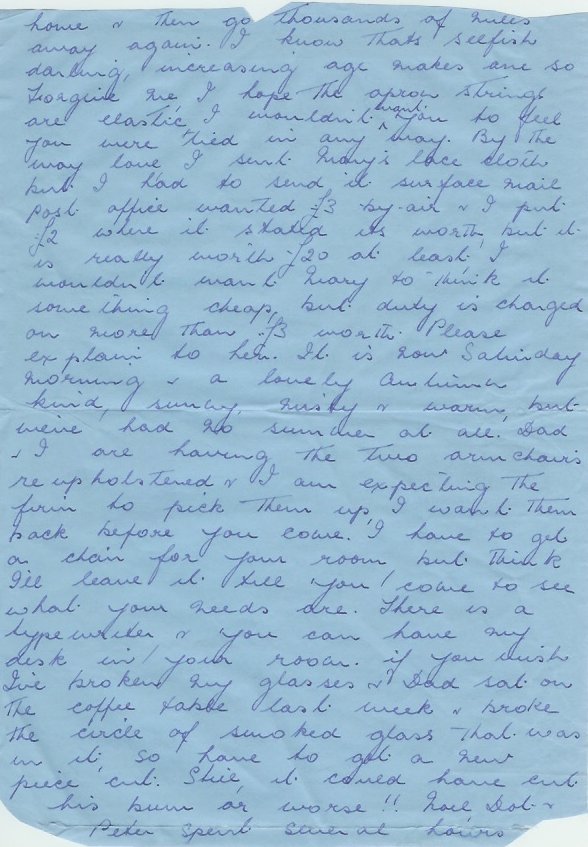 home & then go thousands of miles
away again. I know thats selfish
darling, increasing age makes one so
Forgive me, I hope the apron strings
are elastic, I wouldn't want you to feel
you were tied in any way. By the
way love I sent Mary's lace cloth
but I had to send it surface mail
post office wanted £3 by air & I put
£2 where it stated its worth, but it
is really worth £20 at least. I
wouldn't want Mary to think it
something cheap, but duty is charged
on more than £3 worth. Please
explain to her. It is now Saturday
morning & a lovely Autumn
kind, sunny, misty & warm, but
weve had no summer at all. Dad
& I are having the two armchairs
reupholstered & I am expecting the
firm to pick them up, I want them
back before you come. I have to get
a chair for your room but think
I'll leave it till you come to see
what your needs are. There is a
typewriter & you can have my
desk in your room. if you wish
I've broken my glasses & Dad sat on
the coffee table last week & broke
the circle of smoked glass that was
in it so have to get a new
piece cut. Still it could have cut
his bum or worse!! Noel Dot &
Peter spent several hours